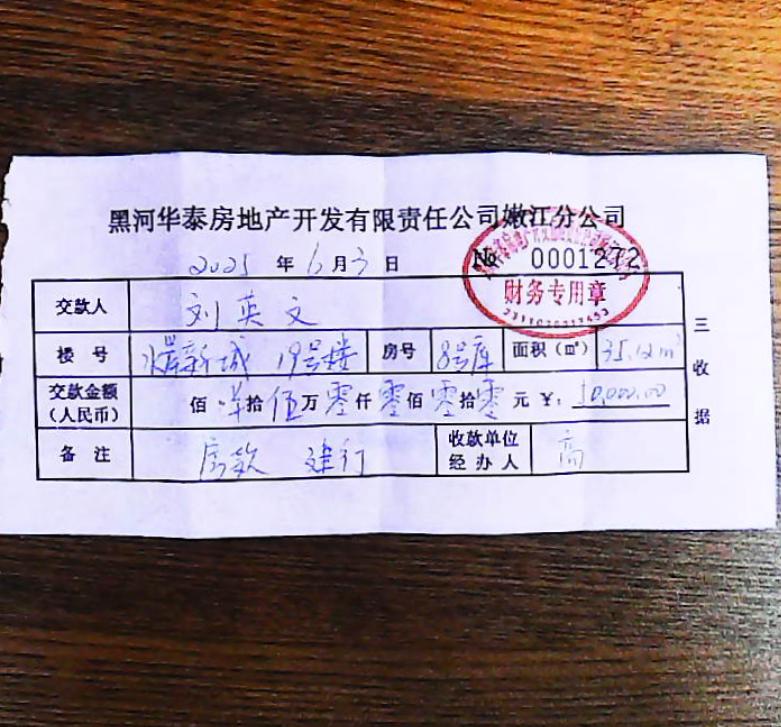 黑河华泰房地产开发有限责任公司嫩江分公司
2025 年 6 月 3 日 № 0001272
财务专用章
交款人 刘英文
楼号 水岸新城 19号楼 房号 8号库 面积(㎡) 35.12m²
交款金额(人民币) 佰 洋 拾 伍 万 零 仟 零 佰 零 拾 零 元 ¥: 50,000.00
备注 房款 建行 收款单位经办人 高
三收据